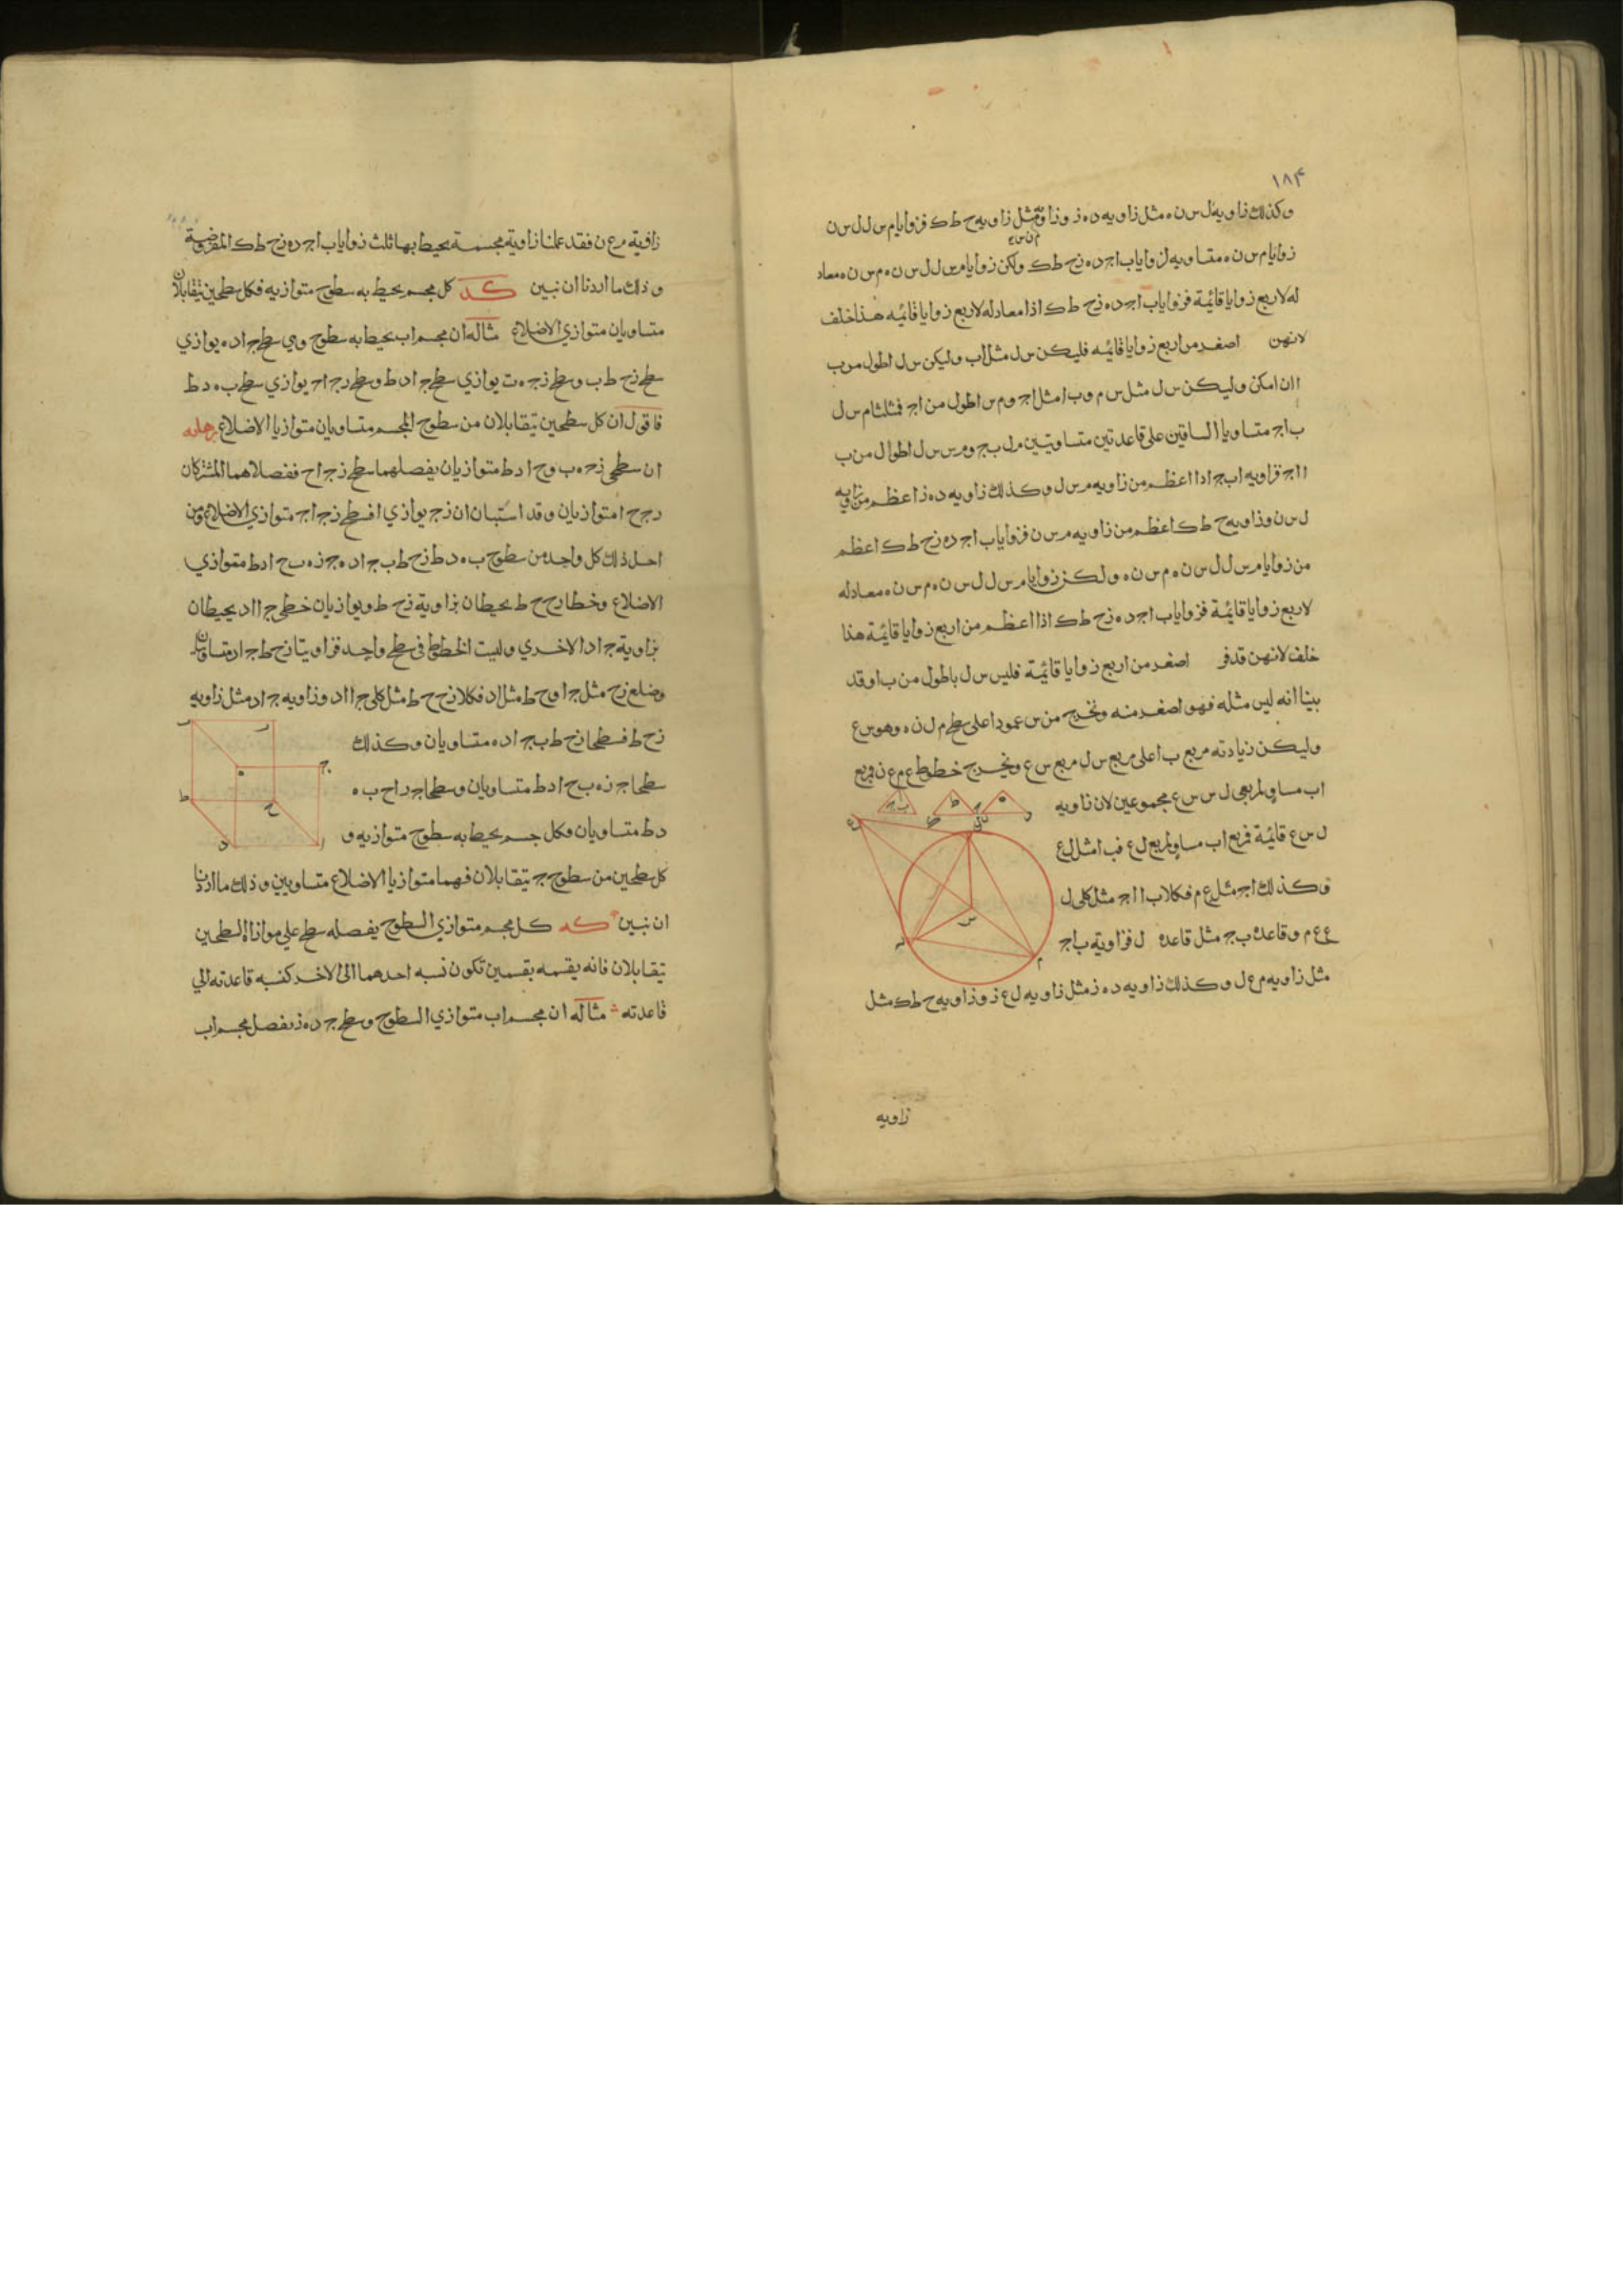 ١٨٤
وكذلك زاويه ل س ن ه مثل زاويه د ه ز وزاويه مثل زاويه ح ط ك فزوايا م س ل ل س ن
م ن س ع
زوايا م س ن ه متساويه لزوايا ب ا ج د ه ز ح ط ك ولكن زوايا م س ل ل س ن ه م س ن ه معاد
له لاربع زوايا قائمة فزوايا ب ا ج د ه ز ح ط ك اذا معادله لاربع زوايا قائمه هذا خلف
لانهن اصغر من اربع زوايا قائمه فليكن س ل مثل ا ب وليكن س ل اطول من ب
ا ان امكن وليكن س ل مثل س م و ب ا مثل ا ج و م س اطول من ا ج فمثلثا م س ل
ب ا ج متساويا الساقين على قاعدتين متساويتين م ل ب ج و م س س ل اطوال من ب
ا ا ج فزاويه ا ب ج اذا اعظم من زاويه م س ل وكذلك زاويه د ه ز اعظم من زاويه
ل س ن وزاويه ح ط ك اعظم من زاويه م س ن فزوايا ب ا ج د ه ز ح ط ك اعظم
من زوايا م س ل ل س ن ه م س ن ه ولكن زوايا م س ل ل س ن ه م س ن ه معادله
لاربع زوايا قائمة فزوايا ب ا ج د ه ز ح ط ك اذا اعظم من اربع زوايا قائمة هذا
خلف لانهن قد فر اصغر من اربع زوايا قائمة فليس س ل باطول من ب ا وقد
بينا انه ليس مثله فهو اصغر منه ونخرج من س عمودا على سطح م ل ن ه وهو س ع
وليكن زيادته مربع ب ا على مربع س ل مربع س ع ونخرج خطوط ع م ع ن فمربع
ا ب مساو لمربعي ل س س ع مجموعين لان زاويه
ل س ع قائمة فمربع ا ب مساو لمربع ل ع فب ا مثل ل ع
وكذلك ا ج مثل ع م فكلا ب ا ا ج مثل كلى ل
ع ع م وقاعدة ب ج مثل قاعدة ل فزاوية ب ا ج
مثل زاويه م ع ل وكذلك زاويه د ه ز مثل زاويه ل ع ز وزاويه ح ط ك مثل
زاويه
زاوية م ع ن فقد عملنا زاوية مجسمة يحيط بها ثلث زوايا ب ا ج د ه ز ح ط ك المفروضة
وذلك ما اردنا ان نبين كد كل مجسم يحيط به سطوح متوازيه فكل سطحين يتقابلان
متساويان متوازي الاضلاع مثاله ان مجسم ا ب يحيط به سطوح وهي سطح ج ا د ه يوازي
سطح ز ح ط ب وسطح ز ج ه ب يوازي سطح ح ا د ط وسطح ز ج ا ح يوازي سطح ب ه د ط
فاقول ان كل سطحين يتقابلان من سطوح المجسم متساويان متوازيا الاضلاع برهانه
ان سطحي ز ج ه ب و ح ا د ط متوازيان يفصلهما سطح ز ج ا ح ففصلاهما المشتركان
ز ج ح ا متوازيان وقد استبان ان ز ح يوازي ا فسطح ز ج ا ح متوازي الاضلاع ومن
اجل ذلك كل واحد من سطوح ب ه د ط ز ح ط ب ج ا د ه ج ز ه ب ح ا د ط متوازي
الاضلاع وخطا ز ح ح ط يحيطان بزاوية ز ح ط ويوازيان خطي ج ا ا د يحيطان
بزاوية ج ا د الاخري وليست الخطوط في سطح واحد فزاويتا ز ح ط ج ا د متساويتان
وضلع ز ح مثل ج ا و ح ط مثل ا د فكلا ز ح ح ط مثل كلى ج ا ا د وزاويه ج ا د مثل زاويه
ز ح ط فسطحا ز ح ط ب ج ا د ه متساويان وكذلك
سطحا ج ز ه ب ح ا د ط متساويان وسطحا ج ز ا ح ب ه
د ط متساويان فكل جسم يحيط به سطوح متوازيه و
كل سطحين من سطوحه يتقابلان فهما متوازيا الاضلاع متساويين وذلك ما اردنا
ان نبين كه كل مجسم متوازي السطوح يفصله سطح علي موازاة السطحين
يتقابلان فانه يقسمه بقسمين تكون نسبه احدهما الى الاخر كنسبه قاعدته الي
قاعدته مثاله ان مجسم ا ب متوازي السطوح وسطح ج د ه ز يفصل مجسم ا ب